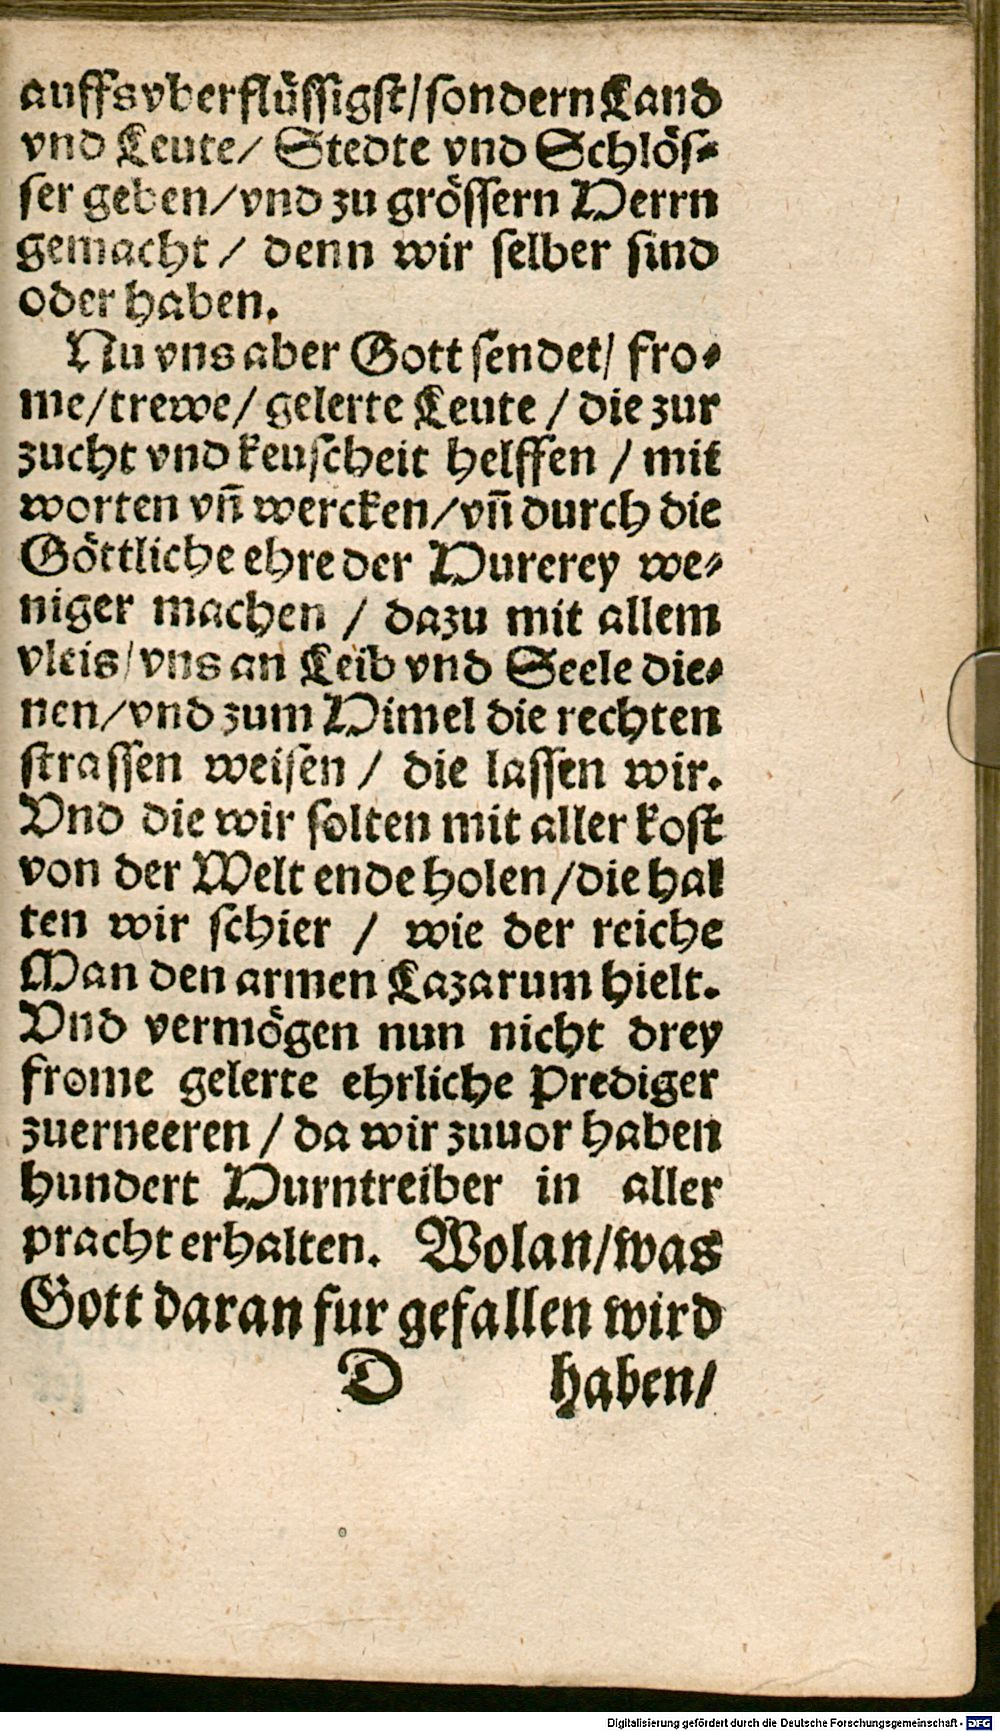 auffs vberflüssigst/ sondern Land
vnd Leute/ Stedte vnd Schlös-
ser geben/ vnd zu grössern Herrn
gemacht/ denn wir selber sind
oder haben.
Nu vns aber Gott sendet/ fro-
me/ trewe/ gelerte Leute/ die zur
zucht vnd keuscheit helffen/ mit
worten vñ wercken/ vñ durch die
Göttliche ehre der Hurerey we-
niger machen/ dazu mit allem
vleis/ vns an Leib vnd Seele die-
nen/ vnd zum Himel die rechten
strassen weisen/ die lassen wir.
Vnd die wir solten mit aller kost
von der Welt ende holen/ die hal
ten wir schier/ wie der reiche
Man den armen Lazarum hielt.
Vnd vermögen nun nicht drey
frome gelerte ehrliche Prediger
zuerneeren/ da wir zuuor haben
hundert Hurntreiber in aller
pracht erhalten. Wolan/ was
Gott daran fur gefallen wird
D haben/
Digitalisierung gefördert durch die Deutsche Forschungsgemeinschaft - DFG